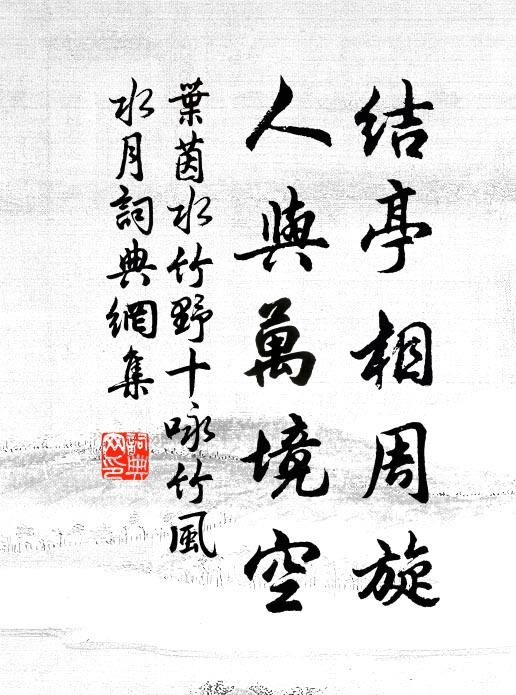 結亭相周旋
人與萬境空
葉茵水竹野十咏竹風
水月詞典網集
詞典
网印